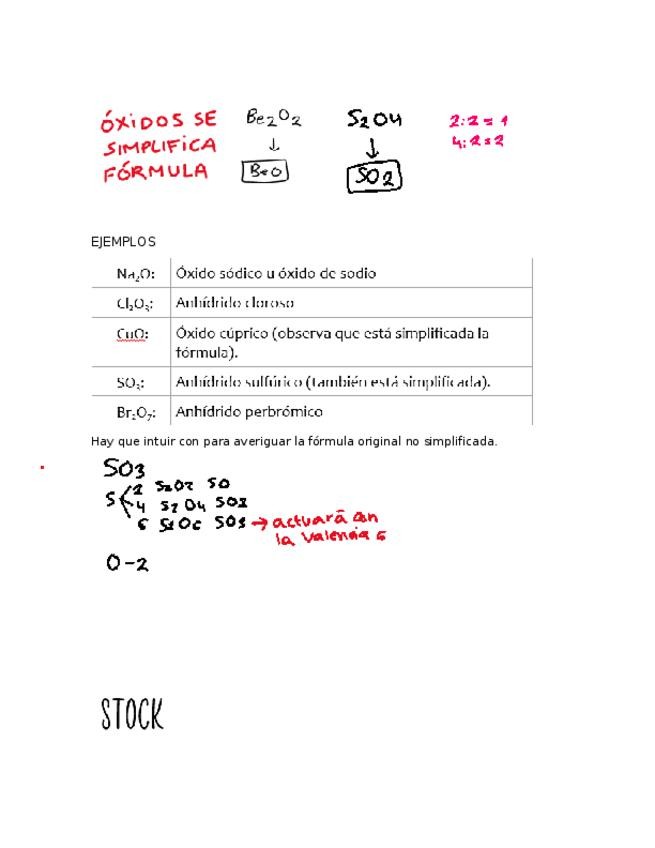 ÓXIDOS SE Be₂O₂ S₂O₄ 2:2 = 1
SIMPLIFICA ↓ ↓ 4:2=2
FÓRMULA BeO SO₂
EJEMPLOS
Na₂O: Óxido sódico u óxido de sodio
Cl₂O₃: Anhídrido cloroso
CuO: Óxido cúprico (observa que está simplificada la
fórmula).
SO₃: Anhídrido sulfúrico (también está simplificada).
Br₂O₇: Anhídrido perbrómico
Hay que intuir con para averiguar la fórmula original no simplificada.
SO₃
2 S₂O₂ SO
S 4 S₂O₄ SO₂
6 S₂O₆ SO₃ → actuará con
la valencia 6
O-2
STOCK